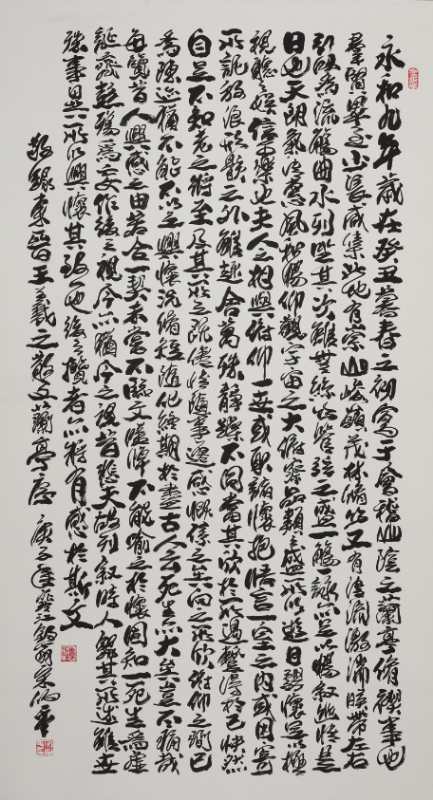 永和九年歲在癸丑暮春之初會于會稽山陰之蘭亭脩禊事也
羣賢畢至少長咸集此地有崇山峻嶺茂林脩竹又有清流激湍暎帶左右
引以為流觴曲水列坐其次雖無絲竹管弦之盛一觴一詠亦足以暢敘幽情是
日也天朗氣清惠風和暢仰觀宇宙之大俯察品類之盛所以遊目騁懷足以極
視聽之娛信可樂也夫人之相與俯仰一世或取諸懷抱悟言一室之內或因寄
所託放浪形骸之外雖趣舍萬殊靜躁不同當其欣於所遇暫得於己快然
自足不知老之將至及其所之既倦情隨事遷感慨係之矣向之所欣俯仰之間已
為陳迹猶不能不以之興懷況脩短隨化終期於盡古人云死生亦大矣豈不痛哉
每覽昔人興感之由若合一契未嘗不臨文嗟悼不能喻之於懷固知一死生為虛
誕齊彭殤為妄作後之視今亦猶今之視昔悲夫故列敘時人錄其所述雖世
殊事異所以興懷其致一也後之攬者亦將有感於斯文
敬錄東晉王羲之散文蘭亭序